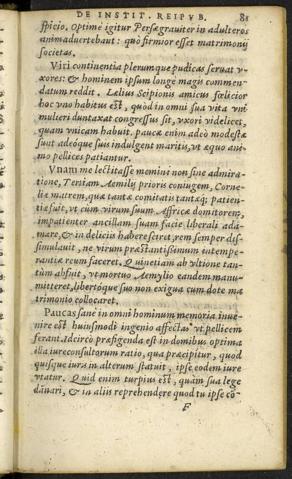 DE INSTIT. REIPVB. 81
spicio. Optimè igitur Persæ grauiter in adulteros
animaduertebant: quò firmior esset matrimonij
societas.
Viri continentia plerunque pudicas seruat v-
xores: & hominem ipsum longè magis commen-
datum reddit. Lælius Scipionis amicus fœlicior
hoc vno habitus est, quòd in omni sua vita vni
mulieri duntaxat congressus sit, vxori videlicet,
quam vnicam habuit. paucæ enim adeò modestæ
sunt adeóque suis indulgent maritis, vt æquo ani-
mo pellices patiantur.
Vnam me lectitasse memini non sine admira-
tione, Tertiam Aemilij prioris coniugem, Corne-
liæ matrem, quæ tantæ comitatis tantæq; patien-
tiæ fuit, vt cùm virum suum Affricæ domitorem,
impatienter ancillam suam facie liberali ada-
mare, & in delicijs habere sciret, rem semper dis-
simulauit, ne virum præstantissimum intempe-
rantiæ reum faceret. Quinetiam ab vltione tan-
tùm abfuit, vt mortuo Aemylio eandem manu-
mitteret, libertóque suo non exigua cum dote ma
trimonio collocaret.
Paucas sanè in omni hominum memoria inue-
nire est huiusmodi ingenio affectas vt pellicem
ferant. Idcircò præfigenda est in domibus optima
illa iureconsultorum ratio, qua præcipitur, quod
quisque iuris in alterum statuit, ipse eodem iure
vtatur. Quid enim turpius est, quàm sua lege
dãnari, & in alijs reprehendere quod tu ipse cõ-
F